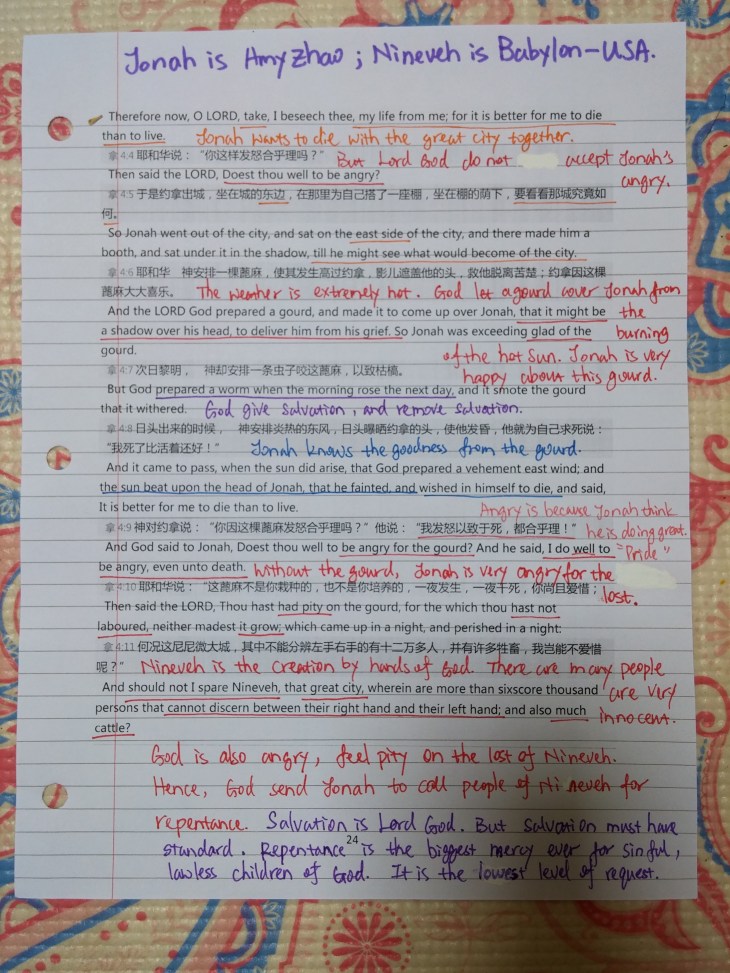 Jonah is Amy Zhao ; Nineveh is Babylon-USA.
Therefore now, O LORD, take, I beseech thee, my life from me; for it is better for me to die
than to live. Jonah wants to die with the great city together.
拿 4:4 耶和华说：“你这样发怒合乎理吗？” But Lord God do not accept Jonah's
Then said the LORD, Doest thou well to be angry? angry.
拿 4:5 于是约拿出城，坐在城的东边，在那里为自己搭了一座棚，坐在棚的荫下，要看看那城究竟如
何。
So Jonah went out of the city, and sat on the east side of the city, and there made him a
booth, and sat under it in the shadow, till he might see what would become of the city.
拿 4:6 耶和华 神安排一棵蓖麻，使其发生高过约拿，影儿遮盖他的头，救他脱离苦楚；约拿因这棵
蓖麻大大喜乐。 The weather is extremely hot. God let a gourd cover Jonah from
And the LORD God prepared a gourd, and made it to come up over Jonah, that it might be the
a shadow over his head, to deliver him from his grief. So Jonah was exceeding glad of the burning
gourd. of the hot sun. Jonah is very
拿 4:7 次日黎明， 神却安排一条虫子咬这蓖麻，以致枯槁。 happy about this gourd.
But God prepared a worm when the morning rose the next day, and it smote the gourd
that it withered. God give salvation, and remove salvation.
拿 4:8 日头出来的时候， 神安排炎热的东风，日头曝晒约拿的头，使他发昏，他就为自己求死说：
“我死了比活着还好！” Jonah knows the goodness from the gourd.
And it came to pass, when the sun did arise, that God prepared a vehement east wind; and
the sun beat upon the head of Jonah, that he fainted, and wished in himself to die, and said,
It is better for me to die than to live. Angry is because Jonah think
拿 4:9 神对约拿说：“你因这棵蓖麻发怒合乎理吗？”他说：“我发怒以致于死，都合乎理！” he is doing great.
And God said to Jonah, Doest thou well to be angry for the gourd? And he said, I do well to "Pride"
be angry, even unto death. Without the gourd, Jonah is very angry for the
拿 4:10 耶和华说：“这蓖麻不是你栽种的，也不是你培养的，一夜发生，一夜干死，你尚且爱惜； lost.
Then said the LORD, Thou hast had pity on the gourd, for the which thou hast not
laboured, neither madest it grow; which came up in a night, and perished in a night:
拿 4:11 何况这尼尼微大城，其中不能分辨左手右手的有十二万多人，并有许多牲畜，我岂能不爱惜
呢？” Nineveh is the creation by hands of God. There are many people
And should not I spare Nineveh, that great city, wherein are more than sixscore thousand are very
persons that cannot discern between their right hand and their left hand; and also much innocent.
cattle?
God is also angry, feel pity on the lost of Nineveh.
Hence, God send Jonah to call people of Nineveh for
repentance. Salvation is Lord God. But salvation must have
standard. Repentance is the biggest mercy ever for sinful,
24
lawless children of God. It is the lowest level of request.